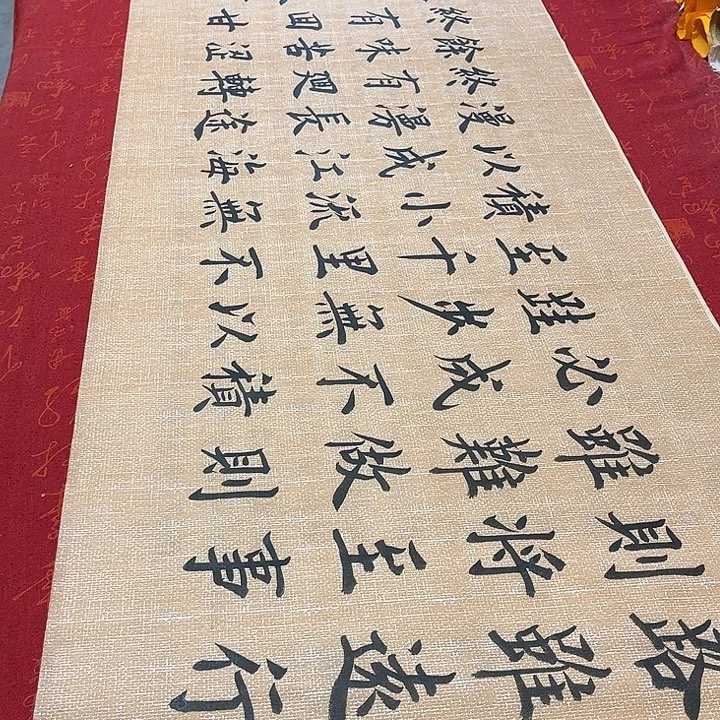 路雖遠行
則將至事
雖難做則
必成不積
跬步無以
至千里不
積小流無
以成江海
漫漫長途
終有迴轉
餘味苦澀
終有回甘